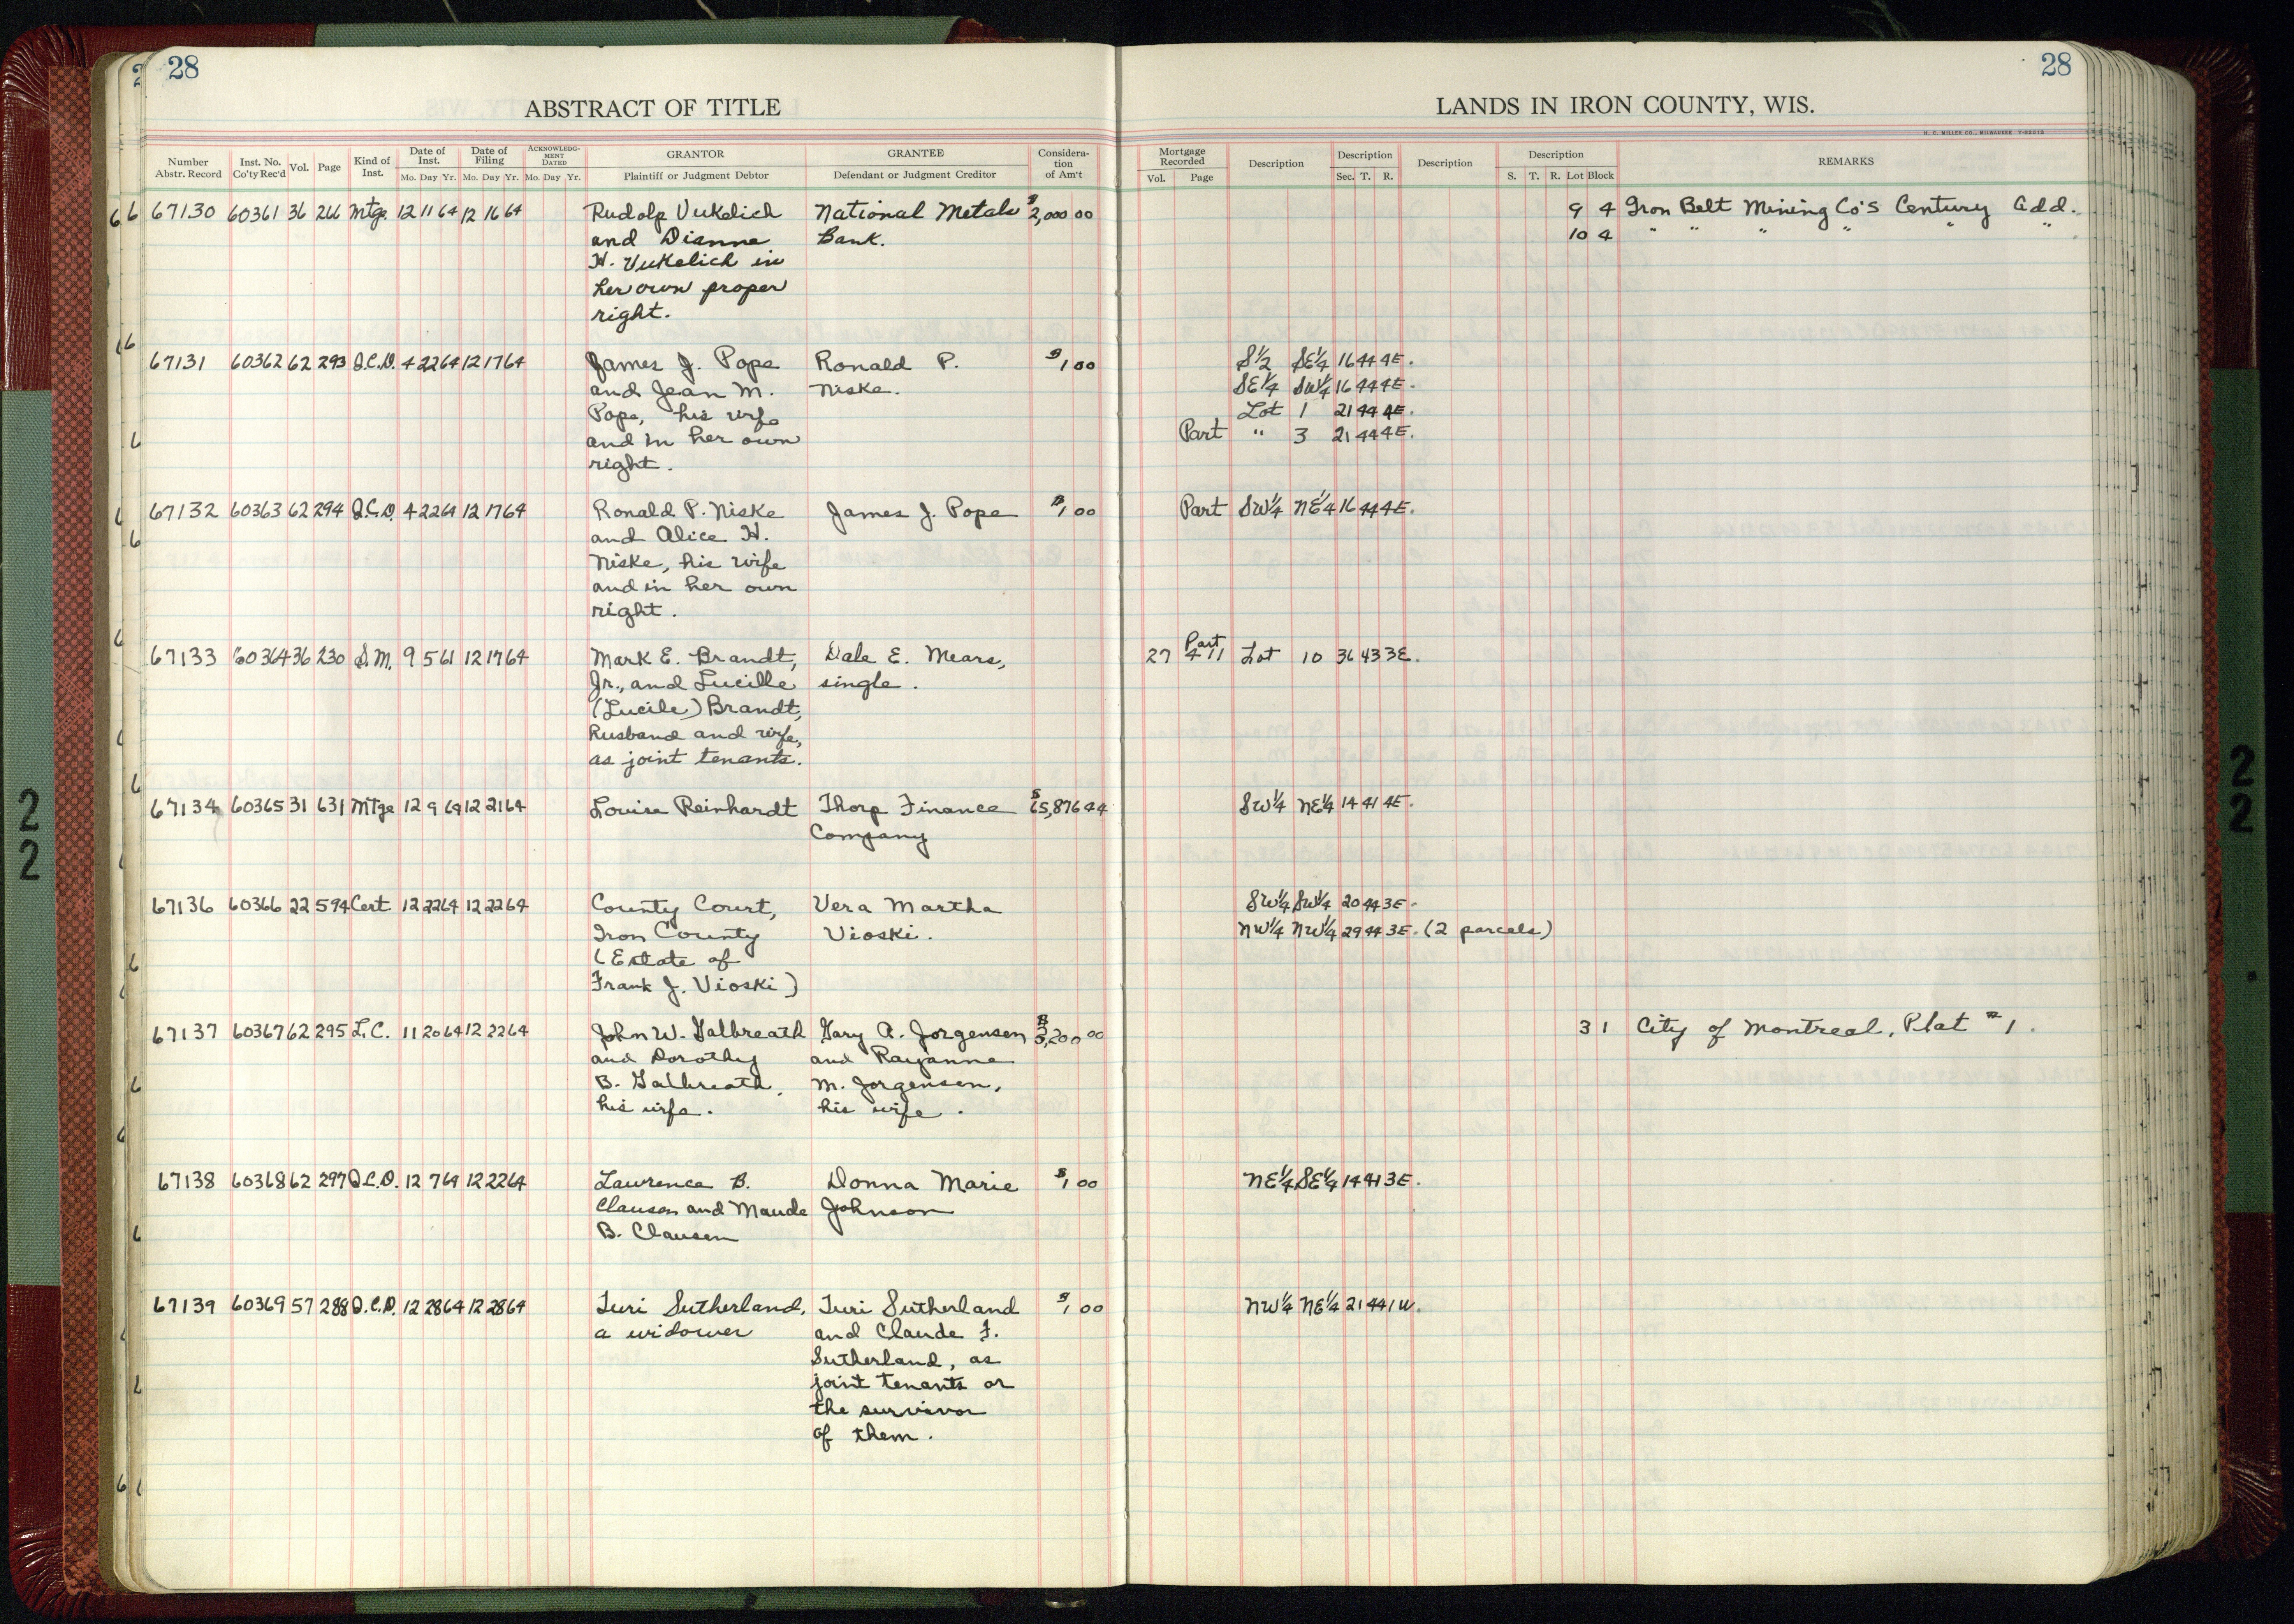 28
28
ABSTRACT OF TITLE
LANDS IN IRON COUNTY, WIS.
H. C. MILLER CO., MILWAUKEE
Number Abstr. Record Inst. No. Co'ty Rec'd Vol. Page Kind of Inst. Date of Inst. Mo. Day Yr. Date of Filing Mo. Day Yr. ACKNOWLEDGMENT DATED Mo. Day Yr. GRANTOR Plaintiff or Judgment Debtor GRANTEE Defendant or Judgment Creditor Consideration of Am't Mortgage Recorded Vol. Page Description Description Sec. T. R. Description Description S. T. R. Lot Block REMARKS
67130 60361 36 266 Mtge. 12 11 64 12 16 64 Rudolp Vukelich National Metals $2,000 00 9 4 Iron Belt Mining Co's Century Add.
and Dianne Bank. 10 4 " " " " " "
H. Vukelich in
her own proper
right.
67131 60362 62 293 Q.C.D. 4 22 64 12 17 64 James J. Pope Ronald P. $1 00 S½ SE¼ 16 44 4E.
and Jean M. Niske. SE¼ SW¼ 16 44 4E.
Pope, his wife Lot 1 21 44 4E.
and in her own Part " 3 21 44 4E.
right.
67132 60363 62 294 Q.C.D. 4 22 64 12 17 64 Ronald P. Niske James J. Pope $1 00 Part SW¼ NE¼ 16 44 4E.
and Alice H.
Niske, his wife
and in her own
right.
67133 60364 36 230 S.M. 9 5 61 12 17 64 Mark E. Brandt, Dale E. Mears, 27 411 Part Lot 10 36 43 3E.
Jr., and Lucille single.
(Lucile) Brandt,
husband and wife,
as joint tenants.
67134 60365 31 631 Mtge 12 9 64 12 21 64 Louise Reinhardt Thorp Finance $65,876 44 SW¼ NE¼ 14 41 4E.
Company
67136 60366 22 594 Cert 12 22 64 12 22 64 County Court, Vera Martha SW¼ SW¼ 20 44 3E.
Iron County Vioski. NW¼ NW¼ 29 44 3E. (2 parcels)
(Estate of
Frank J. Vioski)
67137 60367 62 295 L.C. 11 20 64 12 22 64 John W. Galbreath Gary A. Jorgensen $3,200 00 3 1 City of Montreal, Plat #1.
and Dorothy and Rayanne
B. Galbreath, M. Jorgensen,
his wife. his wife.
67138 60368 62 297 Q.C.D. 12 7 64 12 22 64 Lawrence B. Donna Marie $1 00 NE¼ SE¼ 14 41 3E.
Clausen and Maude Johnson
B. Clausen
67139 60369 57 288 Q.C.D. 12 28 64 12 28 64 Turi Sutherland, Turi Sutherland $1 00 NW¼ NE¼ 21 44 1W.
a widower and Claude F.
Sutherland, as
joint tenants or
the survivor
of them.
22
22